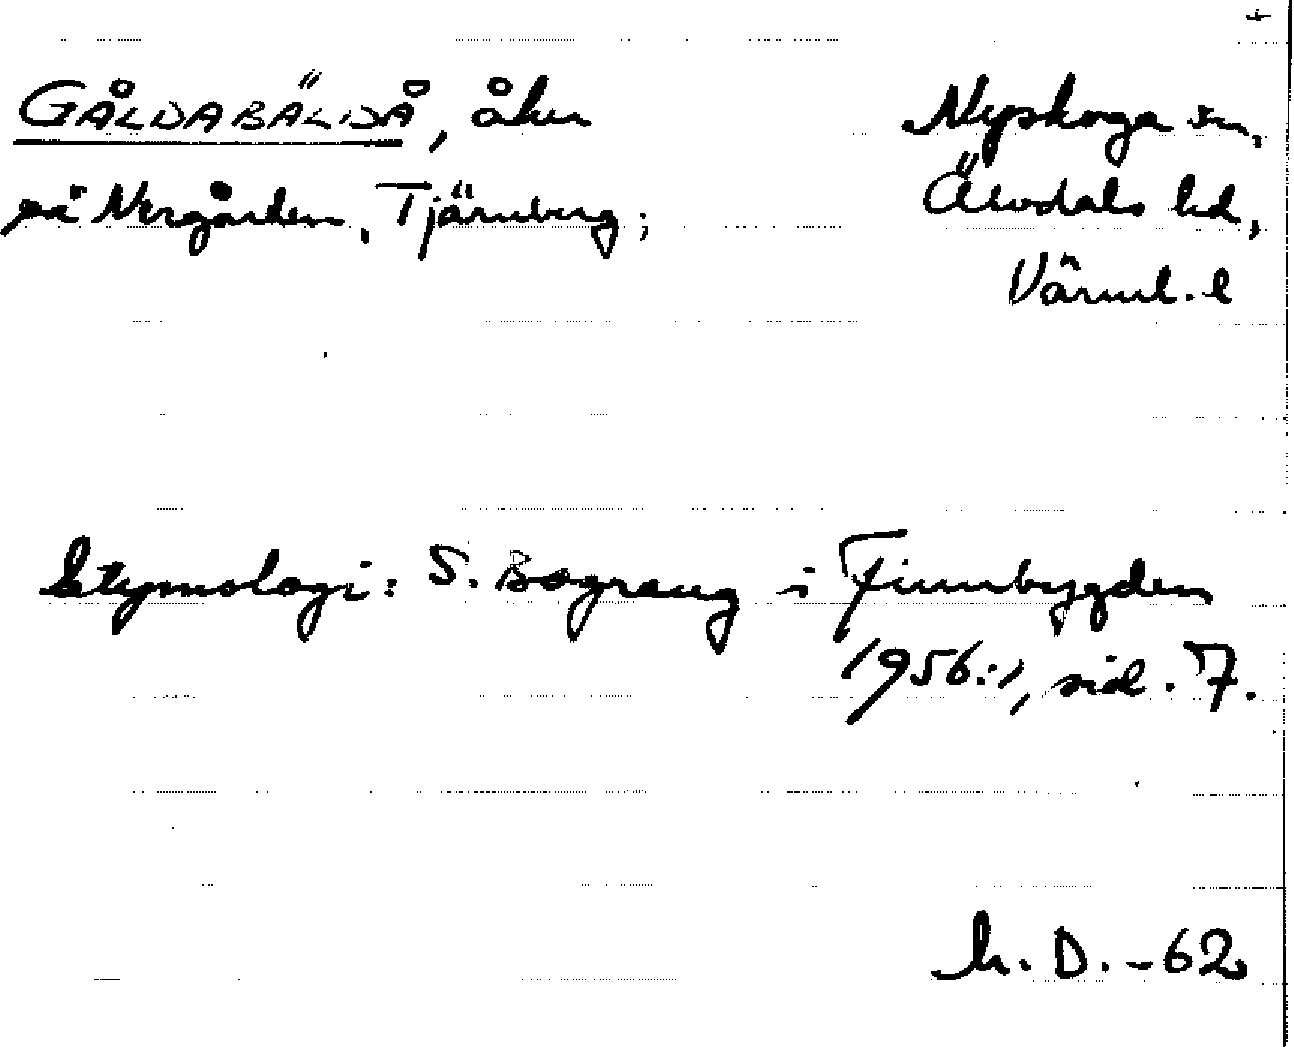 GÅLDABÄLDÅ, åker
Nyskoga sn,
på Nergården, Tjärnberg;
Älvdals hd,
Värml. l
Etymologi: S. Bograng i Finnbygden
1956:1, sid. 7.
h. D. -62